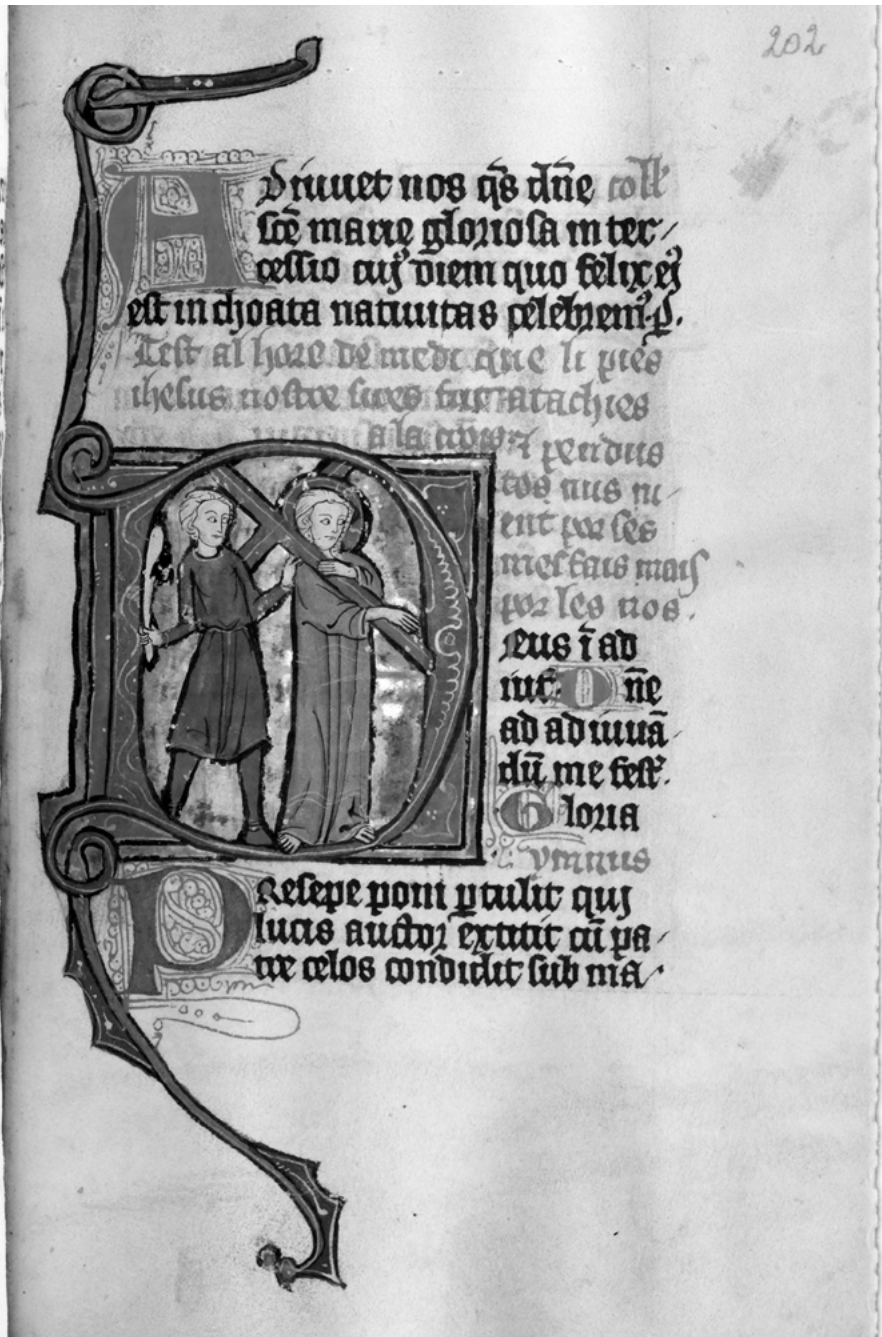 202
Adiuuet nos q̃s dñe coll'
sc̄e marie gloriosa inter/
cessio cuj᾿ diem quo felix ej᾿
est inchoata natiuitas celebrem᾿.ꝑ.
Cest al hore de medi que li pies
ihesus nostre sires fut atachies
a la crois ⁊ pendus
tos nus ni/
ent por ses
mesfais mais
por les nos.
Deus ī ad
iut᾿ Dn̄e
ad adiuuā/
dū me fest᾿.
Gloria
ymnus
Presepe poni ꝑtulit quj
lucis auctor extitit cū pa/
tre celos condidit sub ma/